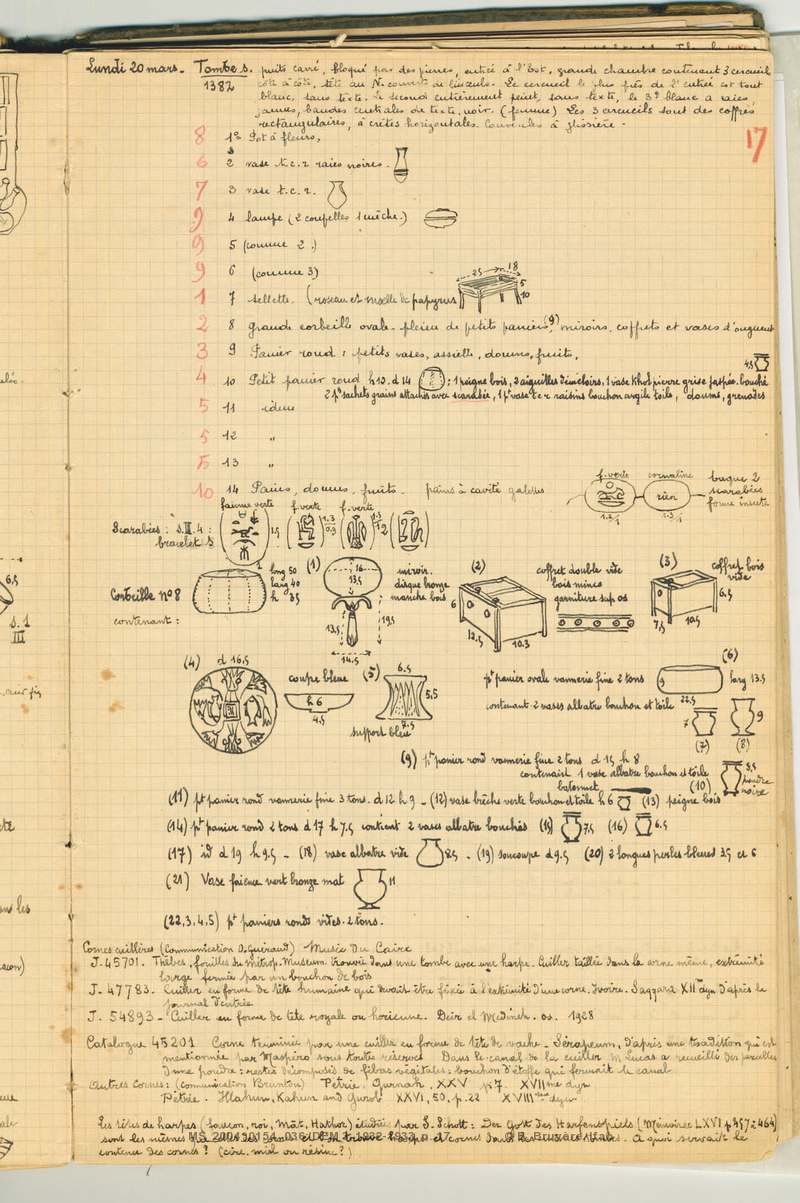 Lundi 20 mars. Tombe s. puits carré, bloqué par des pierres, entrée à l'Est, grande chambre contenant 3 cercueils
1382 côte à côte, tête au N. couverts de linceuls. Le cercueil le plus près de l'entrée est tout
blanc, sans texte. Le second entièrement peint, sans texte, le 3e blanc à raies
jaunes, bandes centrales de texte noir. (femme) Les 3 cercueils sont des coffres
rectangulaires, à crêtes horizontales. Couvercles à glissière -
17
8 1° Pot à fleurs,
6 2 vase t.c.r raies noires.
7 3 vase t.c.r.
9 4 lampe (2 coupelles 1 mèche.)
9 5 (comme 2.)
9 6 (comme 3)
1 7 sellette. (roseau et moelle de papyrus 25 18 5 10
2 8 grande corbeille ovale. pleine de petits paniers, (9) miroirs, coffrets et vases d'onguent
3 9 Panier rond : petits vases, assiette, doums, fruits,
4 10 Petit panier rond h 10. d 14 : 1 peigne bois, 2 aiguilles, 1 vase Khol pierre grise jaspée. bouché 4,5
2 pts sachets grains attachés avec scarabée, 1 pt vase t c r raisins bouchon argile toile, doums, grenades
5 11 idem
5 12 "
5 13 "
10 14 Pains, doums, fruits. pains à cavité galettes
f. verte cornaline bague 2
rien scarabées
forme insecte
Scarabées : S.III.4 : faience verte f. verte f. verte
bracelet S
Corbeille N°8 long 50 larg 40 h 35
contenant :
(1) 16 13,5 13,5 19,5 14,5 miroir. disque bronze manche bois
(2) 6 12,5 10.3 coffret double vide bois mince garniture sup os
(3) 6.5 7,5 10,5 coffret bois vide
(4) d 16,5 coupe bleue h 6 4,5
(5) 6.5 5,5 7.5 support bleu
pt panier ovale vannerie fine 2 tons 9 22,5 (6) larg 13.5
contenant 2 vases albatre bouchon et toile 7 (7) 9 (8)
(9) pt panier rond vannerie fine 2 tons d 15 h 8
contenant 1 vase albatre bouchon et toile
batonnet (10) 5,5 poudre noire
(11) pt panier rond vannerie fine 3 tons. d 12 h 9 - (12) vase brèche verte bouchon et toile h 6 (13) peigne bois
(14) pt panier rond 2 tons d 17 h 7.5 contient 2 vases albatre bouchés (15) 7,5 (16) 6.5
(17) id d 19 h 9.5 - (18) vase albatre vide 8.5 - (19) soucoupe d 9.5 (20) 2 longues perles bleues 3.5 et 6
(21) Vase faience vert bronze mat 11
(22,3,4,5) pts paniers ronds vides. 2 tons.
Cornes cuillères (Communication O. Guéraud) Musée du Caire
J. 45701. Thèbes, fouilles du Métrop. Museum. trouvée dans une tombe avec une harpe. Cuiller taillée dans la corne même, extrémité
large fermée par un bouchon de bois
J. 47783. Cuiller en forme de tête humaine qui devait être fixée à l'extrémité d'une corne. Ivoire. Saqqara XIIme dyn d'après le
journal d'entrée
J. 54893 - Cuiller en forme de tête royale ou horienne. Deir el Médineh. os. 1928
Catalogue 45201 Corne terminée par une cuiller en forme de tête de vache. Sérapeum, d'après une tradition qui est
mentionnée par Maspéro sous toutes réserves Dans le canal de la cuiller M Lucas a recueilli des parcelles
d'une poudre : restes décomposés de fibres végétales : bouchon d'étoffe qui fermait le canal
Autres Cornes : (communication Brunton) Petrie. Qurnah. XXV p. 7. XVIIme dyn
Petrie. Illahun, Kahun and Gurob XXVI, 50, p. 22 XVIIIme dyn.
Les têtes de harpes (faucon, roi, Mât, Hathor) étudiées par S. Schott : Der Gott des Harfenspiels (Mémoires LXVI p 457 à 464)
sont les mêmes
A quoi servait le
contenu des cornes ? (cire, miel ou résine ?)